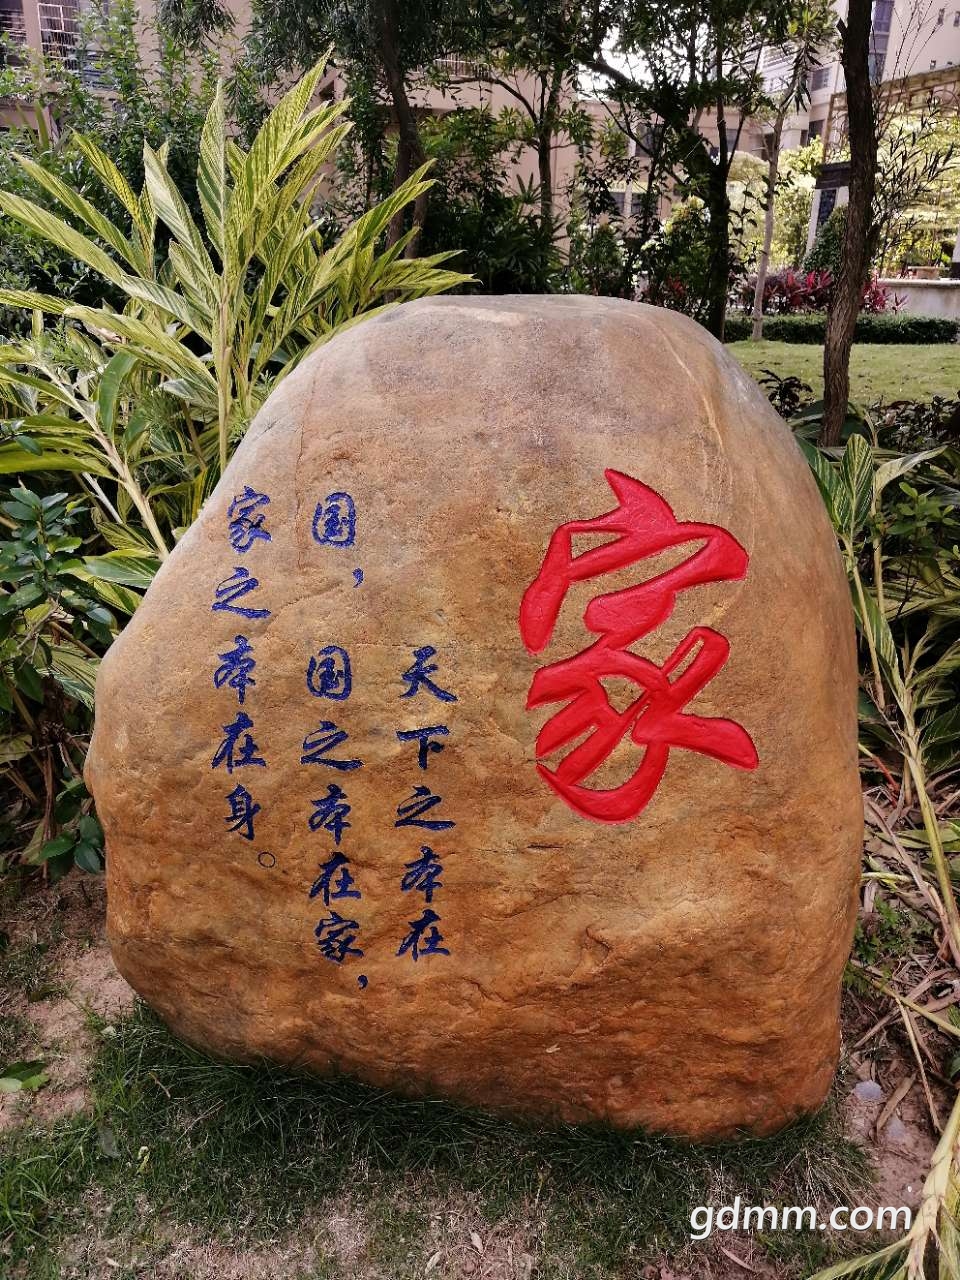 家
天下之本在
国，国之本在家，
家之本在身。
gdmm.com